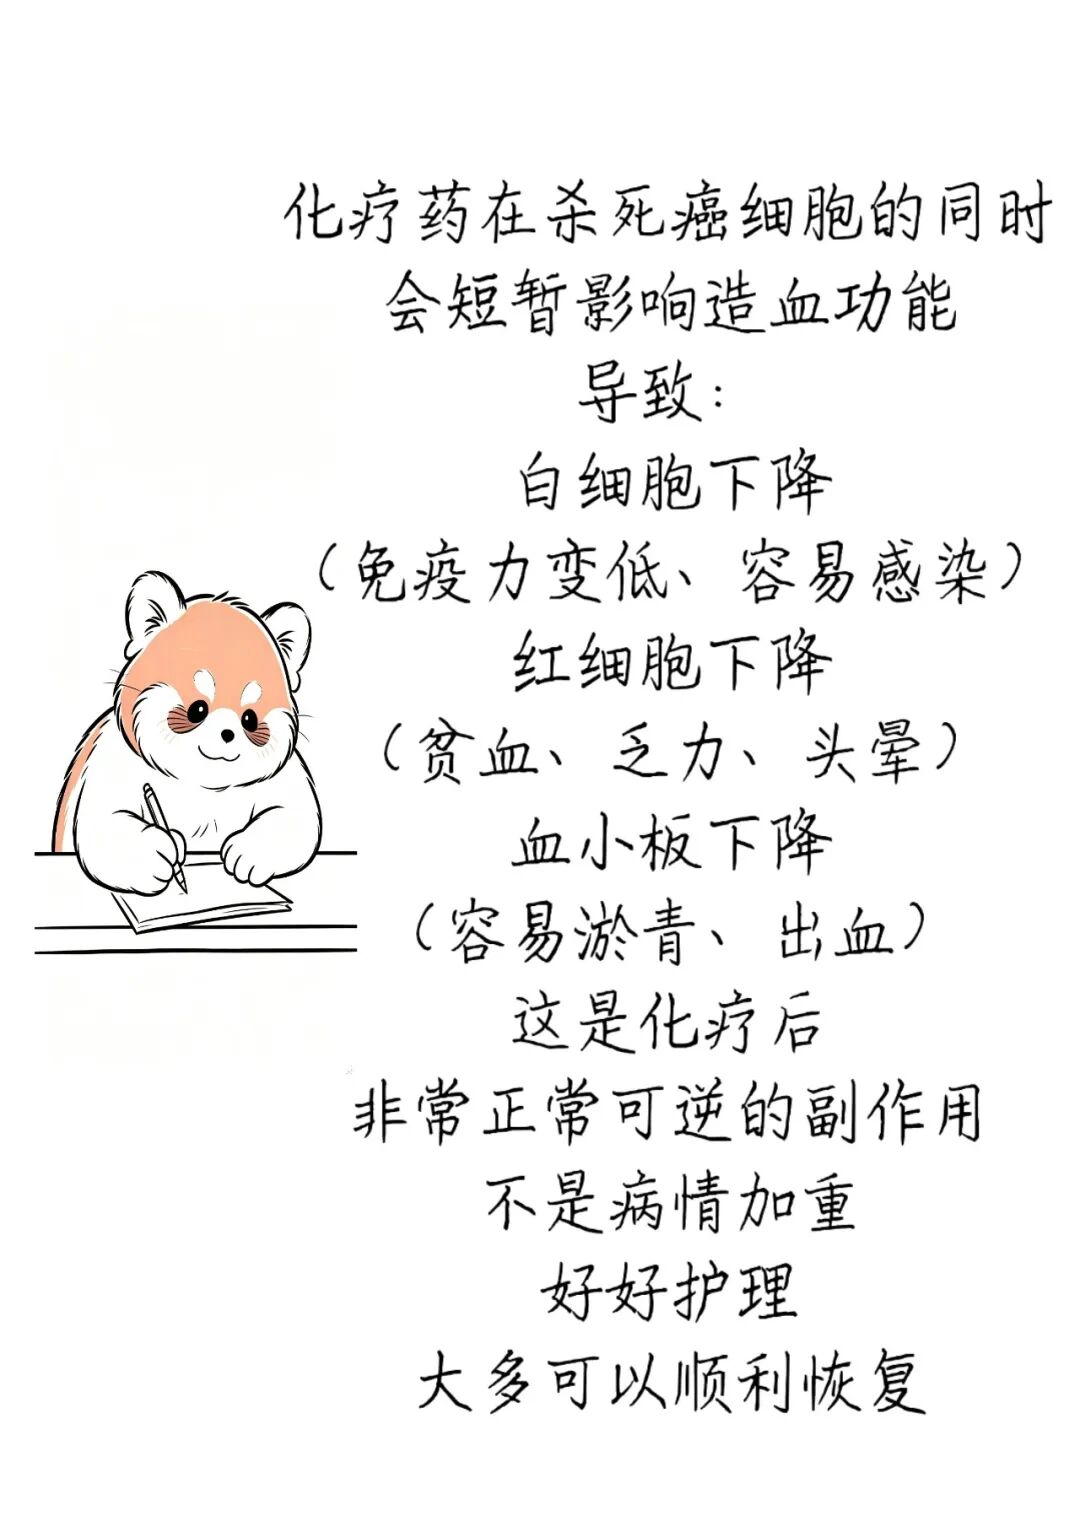 化疗药在杀死癌细胞的同时
会短暂影响造血功能
导致：
白细胞下降
（免疫力变低、容易感染）
红细胞下降
（贫血、乏力、头晕）
血小板下降
（容易淤青、出血）
这是化疗后
非常正常可逆的副作用
不是病情加重
好好护理
大多可以顺利恢复